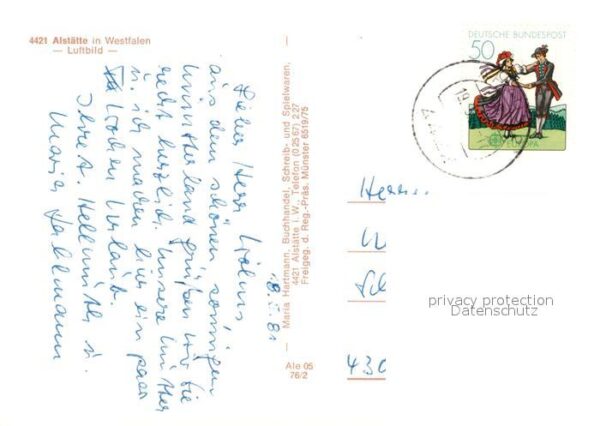 4421 Alstätte in Westfalen
— Luftbild —
Lieber Herr
aus dem schönen sonnigen
Münsterland grüßen wir Sie
recht herzlich. Unsere Mutter
u. ich machen hier ein paar
Wochen Urlaub.
Ihre
Maria
81
Maria Hartmann, Buchhandel, Schreib- und Spielwaren,
4421 Alstätte i. W., Telefon (0 25 67) 2 27
Freigeg. d. Reg.-Präs. Münster 6519/75
Ale 05
76/2
DEUTSCHE BUNDESPOST
50
EUROPA
Herrn
430
privacy protection
Datenschutz